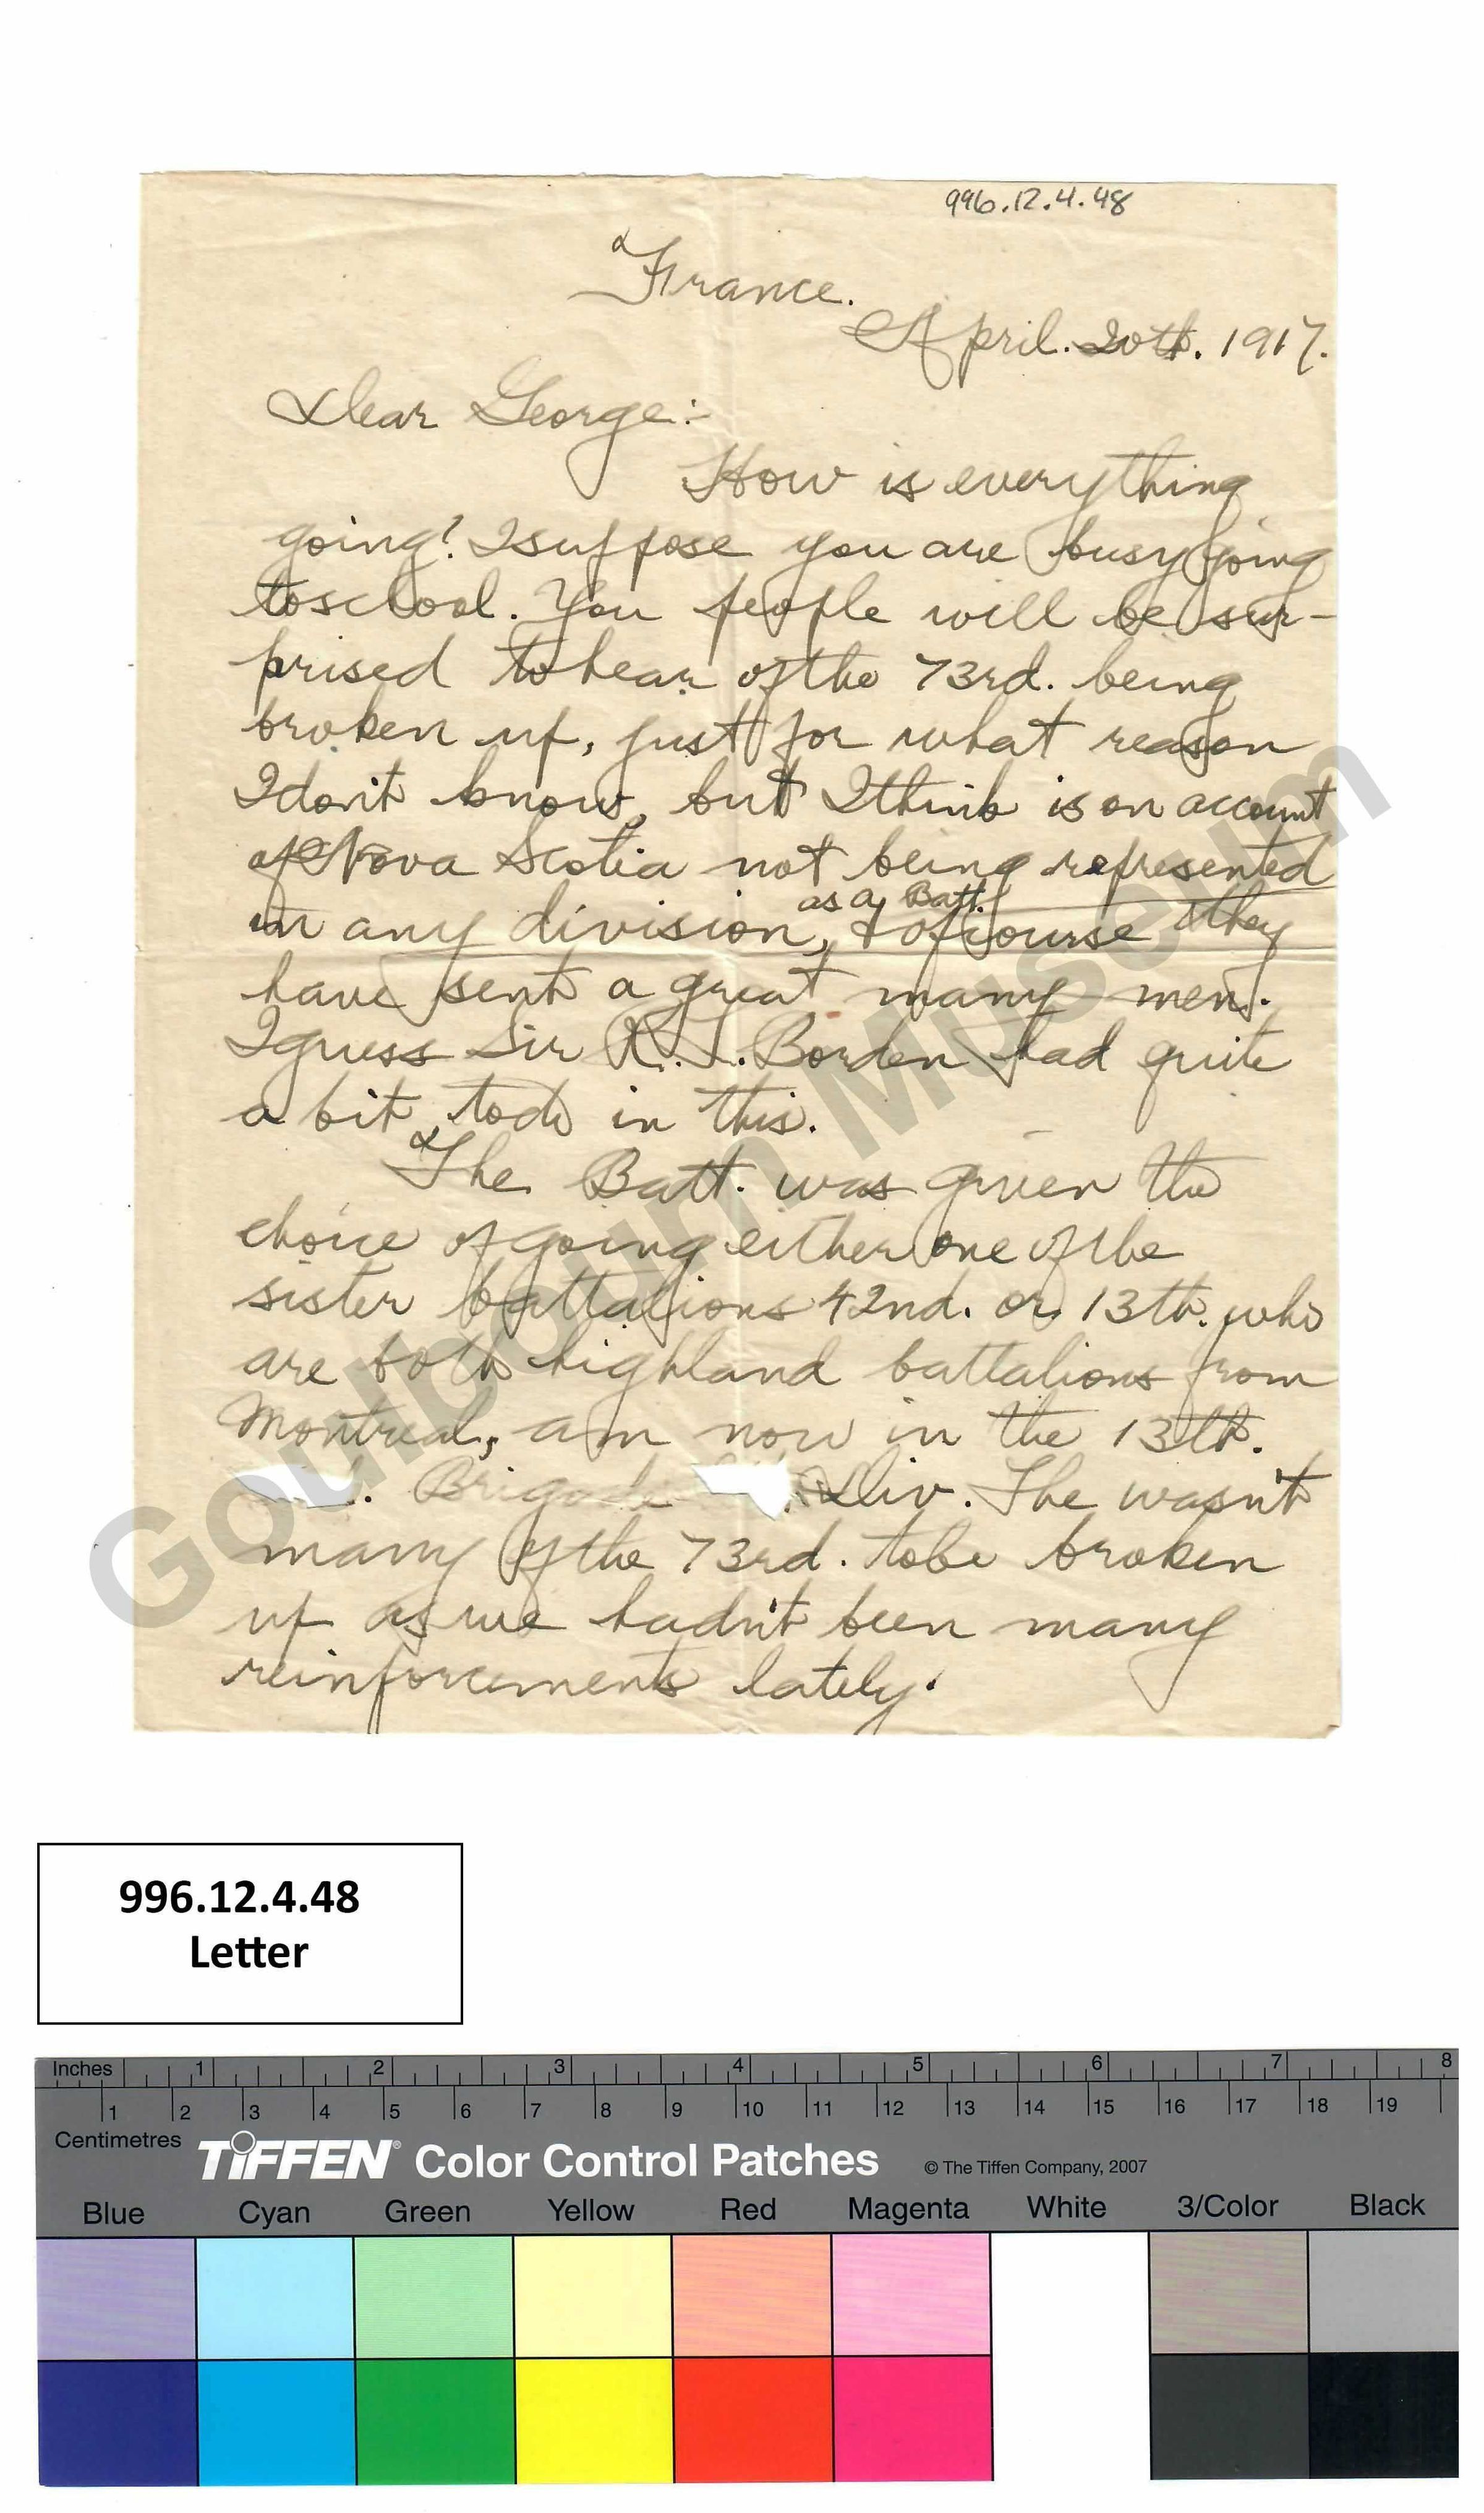 996.12.4.48
France.
April. 20th. 1917.
Dear George:-
How is everything
going? I suppose you are busy going
to school. You people will be sur-
prised to hear of the 73rd. being
broken up, just for what reason
I don't know, but I think is on account
of Nova Scotia not being represented
as a Batt.
in any division, & of course they
have sent a great many men.
I guess Sir R. L. Borden had quite
a bit to do in this.
The Batt. was given the
choice of going either one of the
sister battalions 42nd. or 13th. who
are both highland battalions from
Montreal, am now in the 13th.
Brigade Div. The wasn't
many of the 73rd. to be broken
up as we hadn't been many
reinforcements lately.
Goulbourn Museum
996.12.4.48
Letter
Inches 1 2 3 4 5 6 7 8
1 2 3 4 5 6 7 8 9 10 11 12 13 14 15 16 17 18 19
Centimetres
TIFFEN® Color Control Patches © The Tiffen Company, 2007
Blue Cyan Green Yellow Red Magenta White 3/Color Black